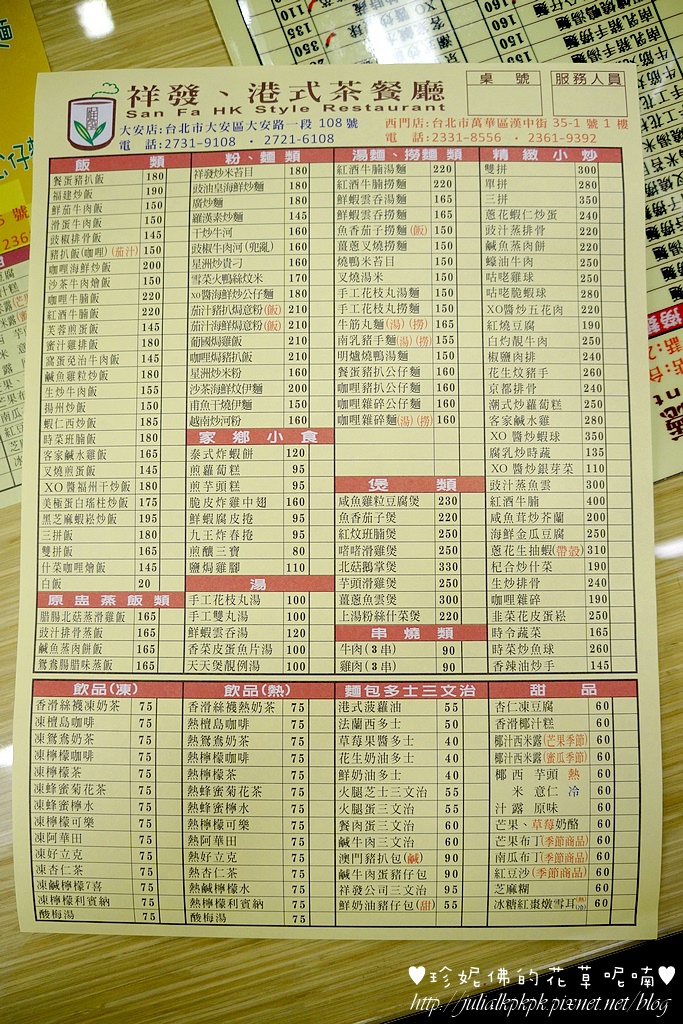 祥發、港式茶餐廳
San Fa HK Style Restaurant
桌 號
服務人員
大安店:台北市大安區大安路一段 108 號
電 話:2731-9108 · 2721-6108
西門店:台北市萬華區漢中街 35-1 號 1 樓
電 話:2331-8556 · 2361-9392
飯 類
餐蛋豬扒飯 180
福建炒飯 190
鮮茄牛肉飯 150
滑蛋牛肉飯 150
豉椒排骨飯 145
豬扒飯(咖哩)(茄汁) 150
咖哩海鮮炒飯 200
沙茶牛肉燴飯 150
咖哩牛腩飯 220
紅酒牛腩飯 220
芙蓉煎蛋飯 145
蜜汁雞排飯 180
窩蛋免治牛肉飯 145
鹹魚雞粒炒飯 180
生炒牛肉飯 155
揚州炒飯 150
蝦仁西炒飯 185
時菜班腩飯 180
客家鹹水雞飯 165
叉燒煎蛋飯 145
XO醬福州干炒飯 180
美極蛋白瑤柱炒飯 175
黑芝麻蝦崧炒飯 195
三拼飯 180
雙拼飯 165
什菜咖哩燴飯 145
白飯 20
原盅蒸飯類
腊腸北菇蒸滑雞飯 165
豉汁排骨蒸飯 165
鹹魚蒸肉餅飯 165
鴛鴦腸腊味蒸飯 165
粉、麵類
祥發炒米苔目 180
豉油皇海鮮炒麵 180
廣炒麵 180
羅漢素炒麵 145
干炒牛河 160
豉椒牛肉河(兜亂) 160
星洲炒貴刁 160
雪菜火鴨絲炆米 170
xo醬海鮮炒公仔麵 180
茄汁豬扒焗意粉(飯) 210
茄汁海鮮焗意粉(飯) 210
葡國焗雞飯 210
咖哩焗豬扒飯 210
星洲炒米粉 160
沙茶海鮮炆伊麵 200
甫魚干燒伊麵 150
越南炒河粉 160
家鄉小食
泰式炸蝦餅 120
煎蘿蔔糕 95
煎芋頭糕 95
脆皮炸雞中翅 160
鮮蝦腐皮捲 95
九王炸春捲 95
煎釀三寶 80
鹽焗雞腳 110
湯
手工花枝丸湯 100
手工雙丸湯 100
鮮蝦雲吞湯 120
香菜皮蛋魚片湯 100
天天煲靚例湯 100
湯麵、撈麵類
紅酒牛腩湯麵 220
紅酒牛腩撈麵 220
鮮蝦雲吞湯麵 165
鮮蝦雲吞撈麵 165
魚香茄子撈麵(飯) 150
薑蔥叉燒撈麵 150
燒鴨米苔目 150
叉燒湯米 150
手工花枝丸湯麵 150
手工花枝丸撈麵 150
牛筋丸麵(湯)(撈) 165
南乳豬手麵(湯)(撈) 155
明爐燒鴨湯麵 150
餐蛋豬扒公仔麵 160
咖哩豬扒公仔麵 160
咖哩雞碎公仔麵 160
咖哩雞碎麵(湯)(撈) 160
煲 類
咸魚雞粒豆腐煲 230
魚香茄子煲 220
紅炆班腩煲 250
啫啫滑雞煲 250
北菇鵝掌煲 330
芋頭滑雞煲 250
薑蔥魚雲煲 300
上湯粉絲什菜煲 220
串燒類
牛肉(3串) 90
雞肉(3串) 90
精緻小炒
雙拼 300
單拼 280
三拼 350
蔥花蝦仁炒蛋 240
豉汁蒸排骨 220
鹹魚蒸肉餅 220
蠔油牛肉 250
咕咾雞球 250
咕咾脆蝦球 280
XO醬炒五花肉 220
紅燒豆腐 190
白灼靚牛肉 250
椒鹽肉排 240
花生炆豬手 260
京都排骨 240
潮式炒蘿蔔糕 250
客家鹹水雞 280
XO 醬炒蝦球 350
腐乳炒時蔬 135
XO 醬炒銀芽菜 110
豉汁蒸魚雲 300
紅酒牛腩 400
咸魚茸炒芥蘭 200
海鮮金瓜豆腐 250
蔥花生抽蝦(帶殼) 310
杞合炒什菜 190
生炒排骨 240
咖哩雜碎 190
韭菜花皮蛋崧 250
時令蔬菜 165
時菜炒魚球 260
香辣油炒手 145
飲品(凍)
香滑絲襪凍奶茶 75
凍檀島咖啡 75
凍鴛鴦奶茶 75
凍檸檬咖啡 75
凍檸檬茶 75
凍蜂蜜菊花茶 75
凍蜂蜜檸水 75
凍檸檬可樂 75
凍阿華田 75
凍好立克 75
凍杏仁茶 75
凍鹹檸檬7喜 75
凍檸檬利賓納 75
酸梅湯 75
飲品(熱)
香滑絲襪熱奶茶 75
熱檀島咖啡 75
熱鴛鴦奶茶 75
熱檸檬咖啡 75
熱檸檬茶 75
熱蜂蜜菊花茶 75
熱蜂蜜檸水 75
熱檸檬可樂 75
熱阿華田 75
熱好立克 75
熱杏仁茶 75
熱鹹檸檬水 75
熱檸檬利賓納 75
酸梅湯 75
麵包多士三文治
港式菠蘿油 55
法蘭西多士 50
草莓果醬多士 40
花生奶油多士 40
鮮奶油多士 40
火腿芝士三文治 55
火腿蛋三文治 55
餐肉蛋三文治 60
鹹牛肉三文治 60
澳門豬扒包(鹹) 90
鹹牛肉蛋豬仔包 90
祥發公司三文治 95
鮮奶油豬仔包(甜) 55
甜 品
杏仁凍豆腐 60
香滑椰汁糕 60
椰汁西米露(芒果季節) 60
椰汁西米露(蜜瓜季節) 60
椰 西 芋頭 熱 60
米 意仁 冷 60
汁 露 原味 60
芒果、草莓奶酪 60
芒果布丁(季節商品) 60
南瓜布丁(季節商品) 60
紅豆沙(季節商品) 60
芝麻糊 60
冰糖紅棗燉雪耳(熱)(冷) 60
♥珍妮佛的花草呢喃♥
http://julialkpkpk.pixnet.net/blog